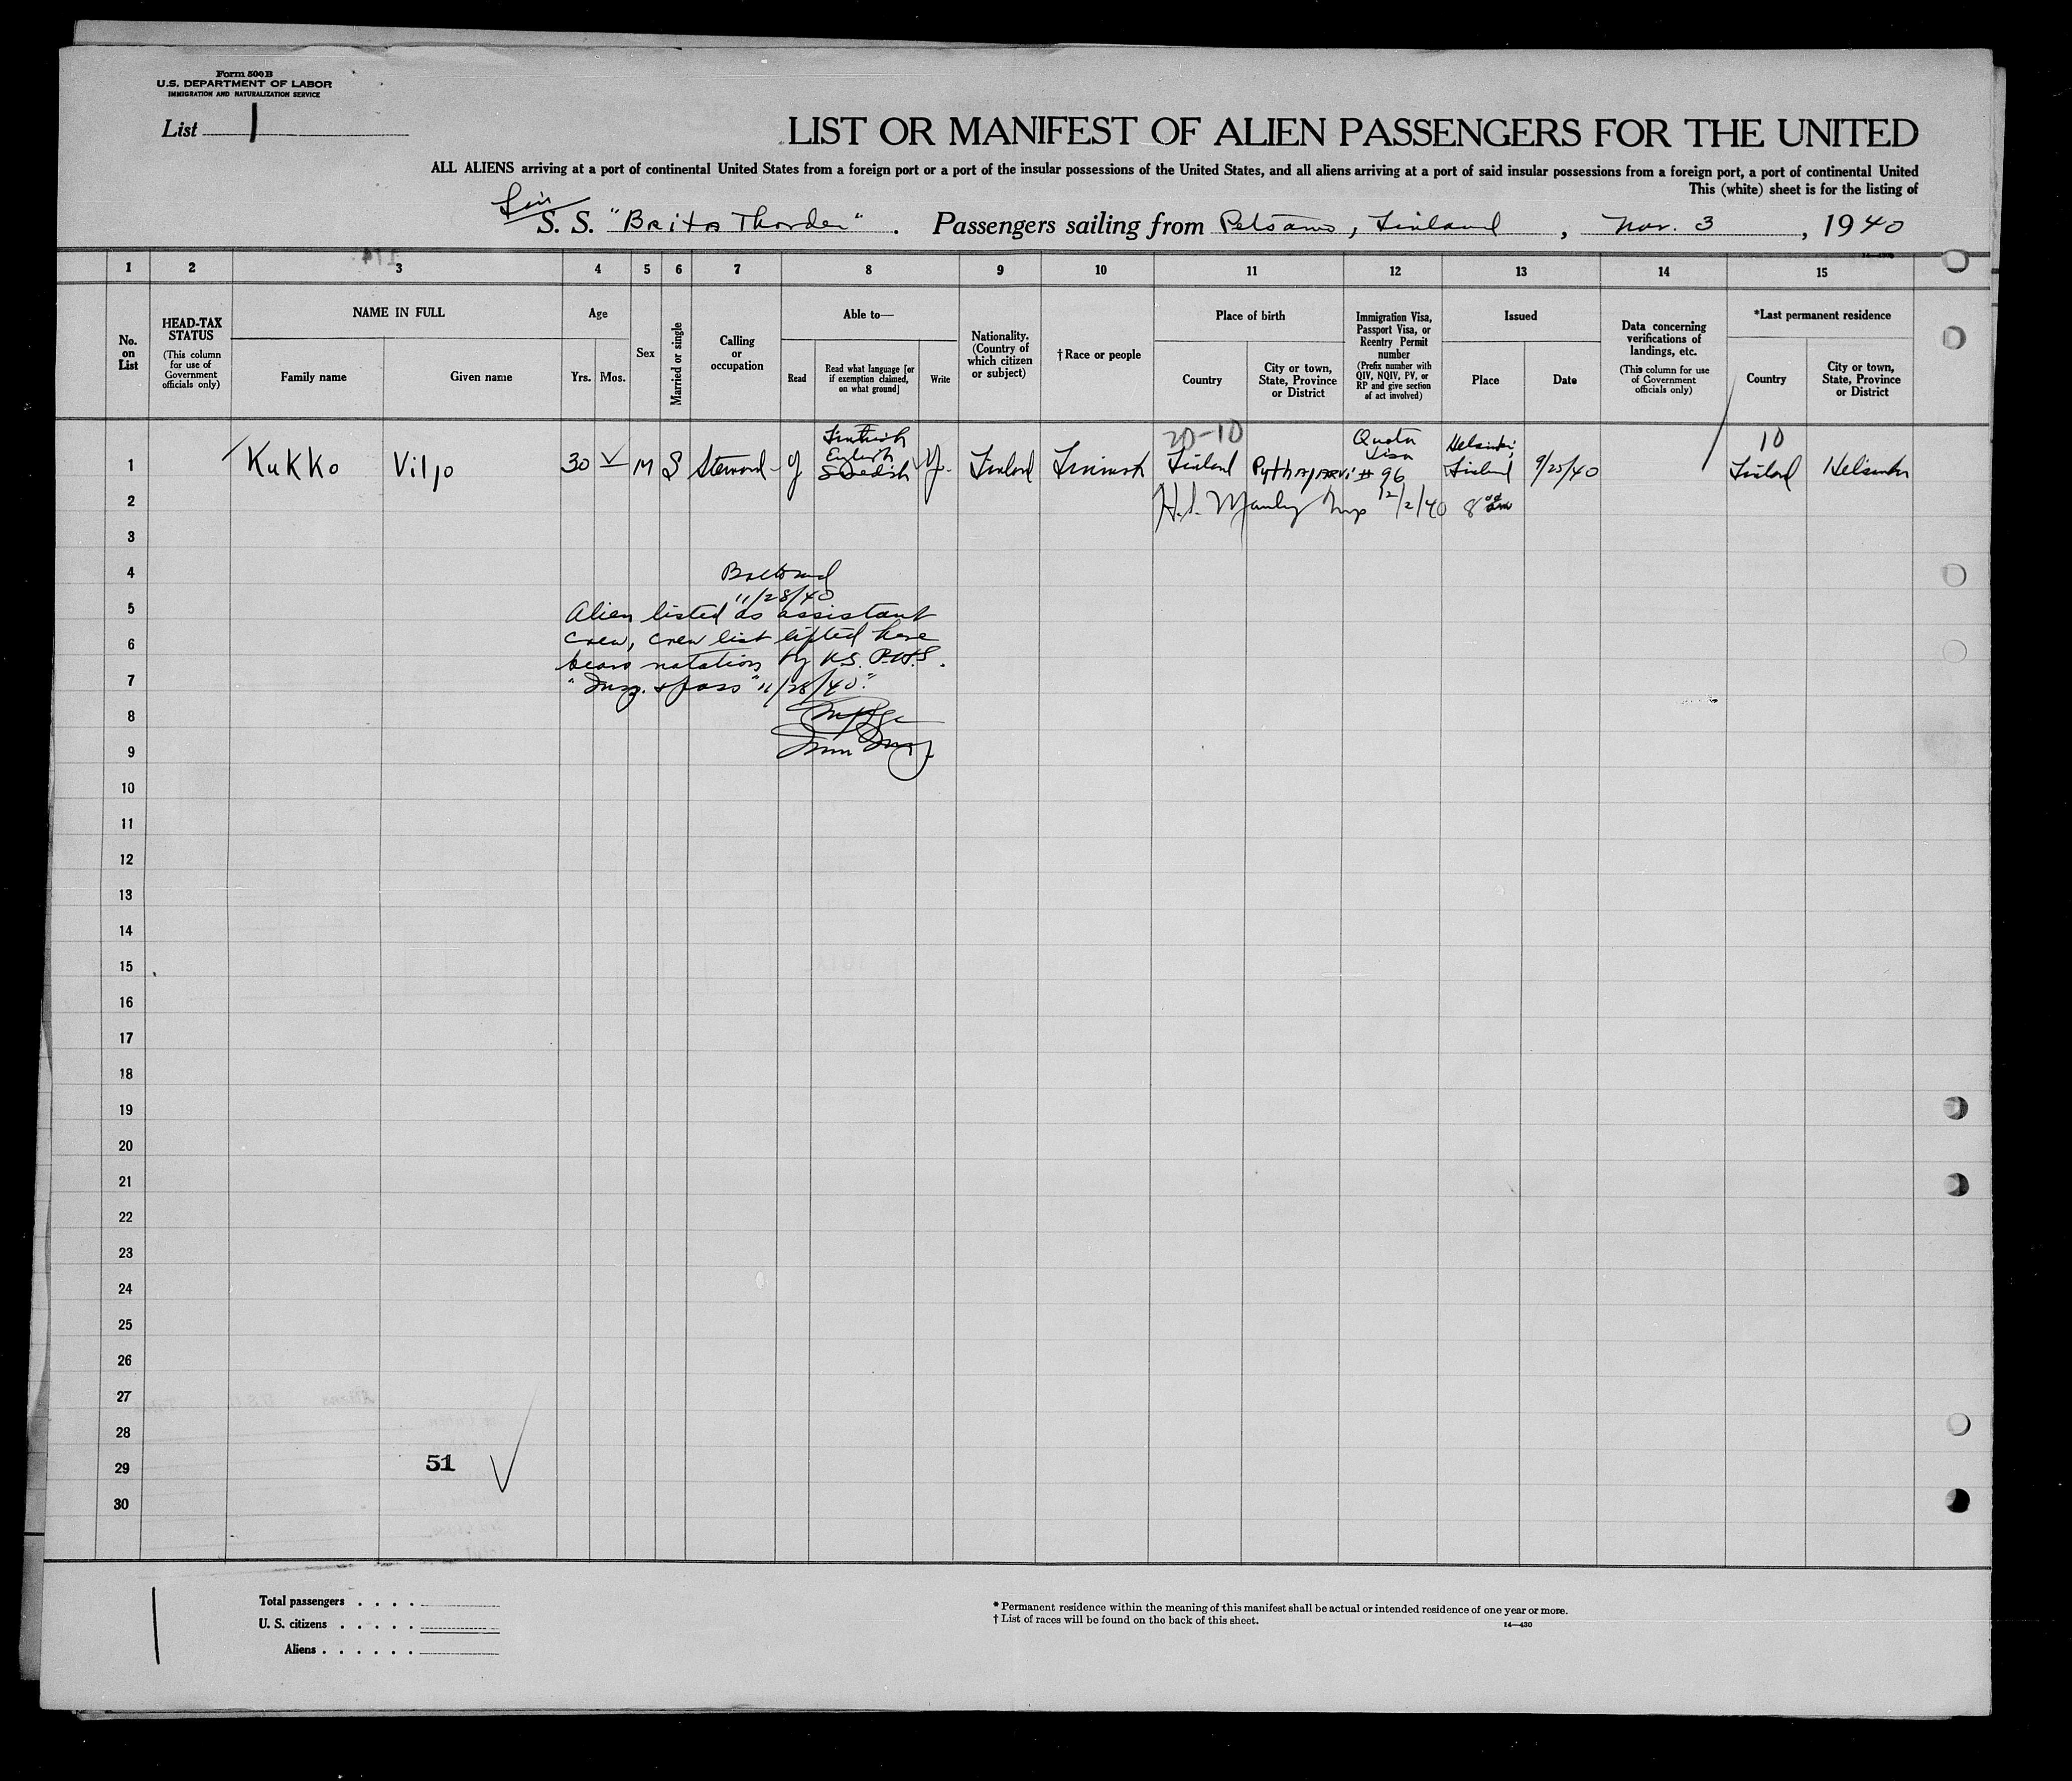 Form 500 B
U.S. DEPARTMENT OF LABOR
IMMIGRATION AND NATURALIZATION SERVICE
List 1
LIST OR MANIFEST OF ALIEN PASSENGERS FOR THE UNITED
ALL ALIENS arriving at a port of continental United States from a foreign port or a port of the insular possessions of the United States, and all aliens arriving at a port of said insular possessions from a foreign port, a port of continental United
This (white) sheet is for the listing of
Fin
S. S. "Brita Thorden". Passengers sailing from Petsamo, Finland, Nov. 3, 1940
1 2 3 4 5 6 7 8 9 10 11 12 13 14 15
No. on List
HEAD-TAX STATUS
(This column for use of Government officials only)
NAME IN FULL
Family name Given name
Age
Yrs. Mos.
Sex
Married or single
Calling or occupation
Able to—
Read
Read what language [or if exemption claimed, on what ground]
Write
Nationality. (Country of which citizen or subject)
†Race or people
Place of birth
Country
City or town, State, Province or District
Immigration Visa, Passport Visa, or Reentry Permit number
(Prefix number with QIV, NQIV, PV, or RP and give section of act involved)
Issued
Place Date
Data concerning verifications of landings, etc.
(This column for use of Government officials only)
*Last permanent residence
Country
City or town, State, Province or District
20-10 10
1 Kukko Viljo 30 M S Steward y Finnish English Swedish y Finland Finnish Finland Pyhäjärvi Quota Visa # 96 Helsinki, Finland 9/25/40 Finland Helsinki
2 12/2/40
3
4
5
6
7
8
9
11/28/40
Alien listed as assistant
crew, crew list lifted here
bears notation by U.S. P.H.S.
"Insp. & pass" 11/28/40."
10
11
12
13
14
15
16
17
18
19
20
21
22
23
24
25
26
27
28
29
30
51
Total passengers
U. S. citizens
Aliens
* Permanent residence within the meaning of this manifest shall be actual or intended residence of one year or more.
† List of races will be found on the back of this sheet.
14—430